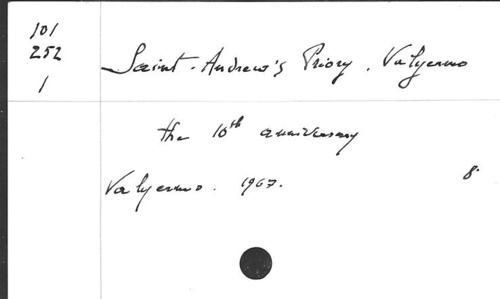 101
252
1
Saint-Andrew's Priory. Valyermo
the 10th anniversary
Valyermo. 1967.
8°